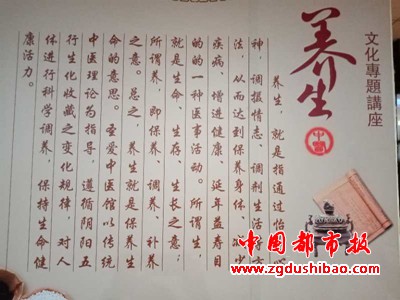 文化專題講座
养生
养生，就是指通过怡心
神，调摄情志、调剂生活等方
法，从而达到保养身体、减少
疾病、增进健康、延年益寿目
的的一种医事活动。所谓生，
就是生命、生存、生长之意；
所谓养，即保养、调养、补养
之意。总之，养生就是保养生
命的意思。圣爱中医馆以传统
中医理论为指导，遵循阴阳五
行生化收藏之变化规律，对人
体进行科学调养，保持生命健
康活力。
中国都市报
www.zgdushibao.com